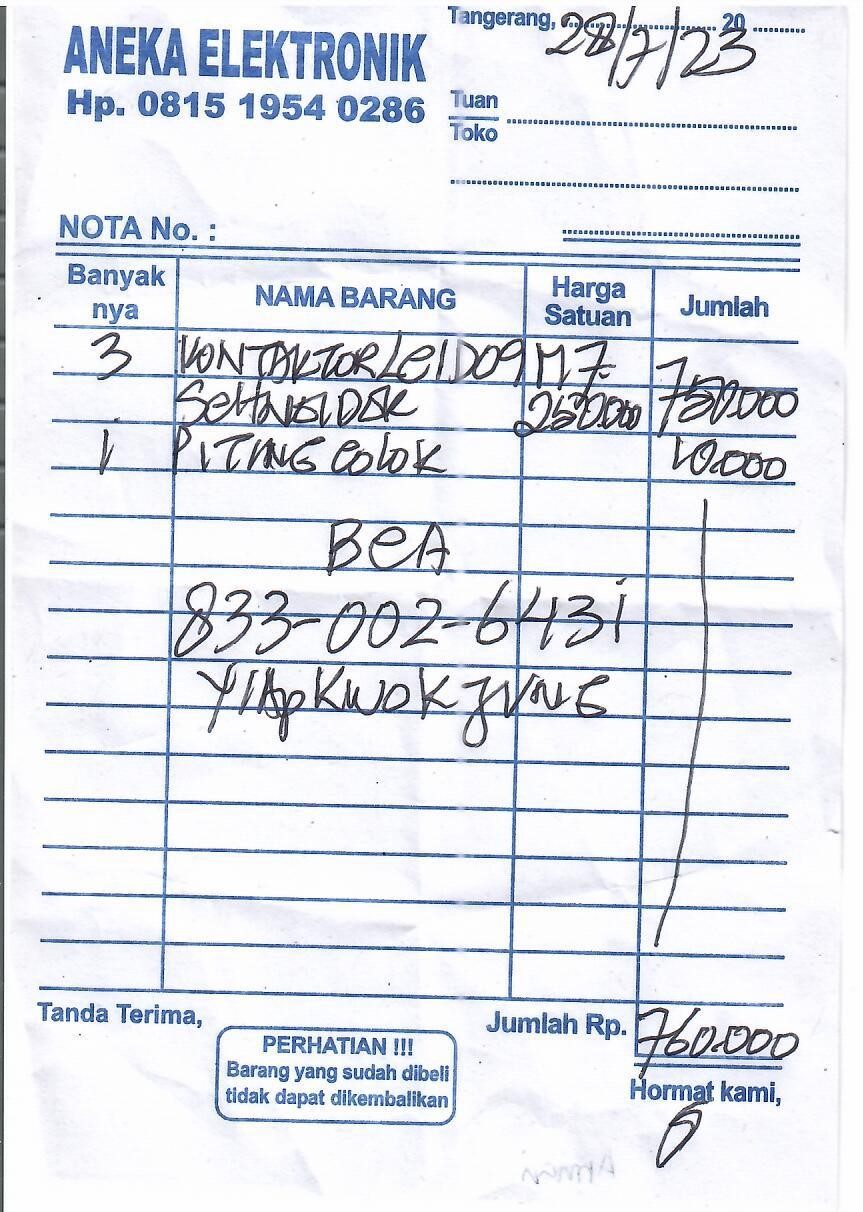 ANEKA ELEKTRONIK
Hp. 0815 1954 0286
Tangerang, 28/7/23 20
Tuan
Toko
NOTA No. :
Banyak nya NAMA BARANG Harga Satuan Jumlah
3 KONTAKTOR LC1D09 M7
SCHNEIDER 250.000 750.000
1 PITING COLOK 10.000
BCA
833-002-6431
YIAP KWOK JUNG
Tanda Terima, Jumlah Rp. 760.000
PERHATIAN !!!
Barang yang sudah dibeli
tidak dapat dikembalikan
Hormat kami,